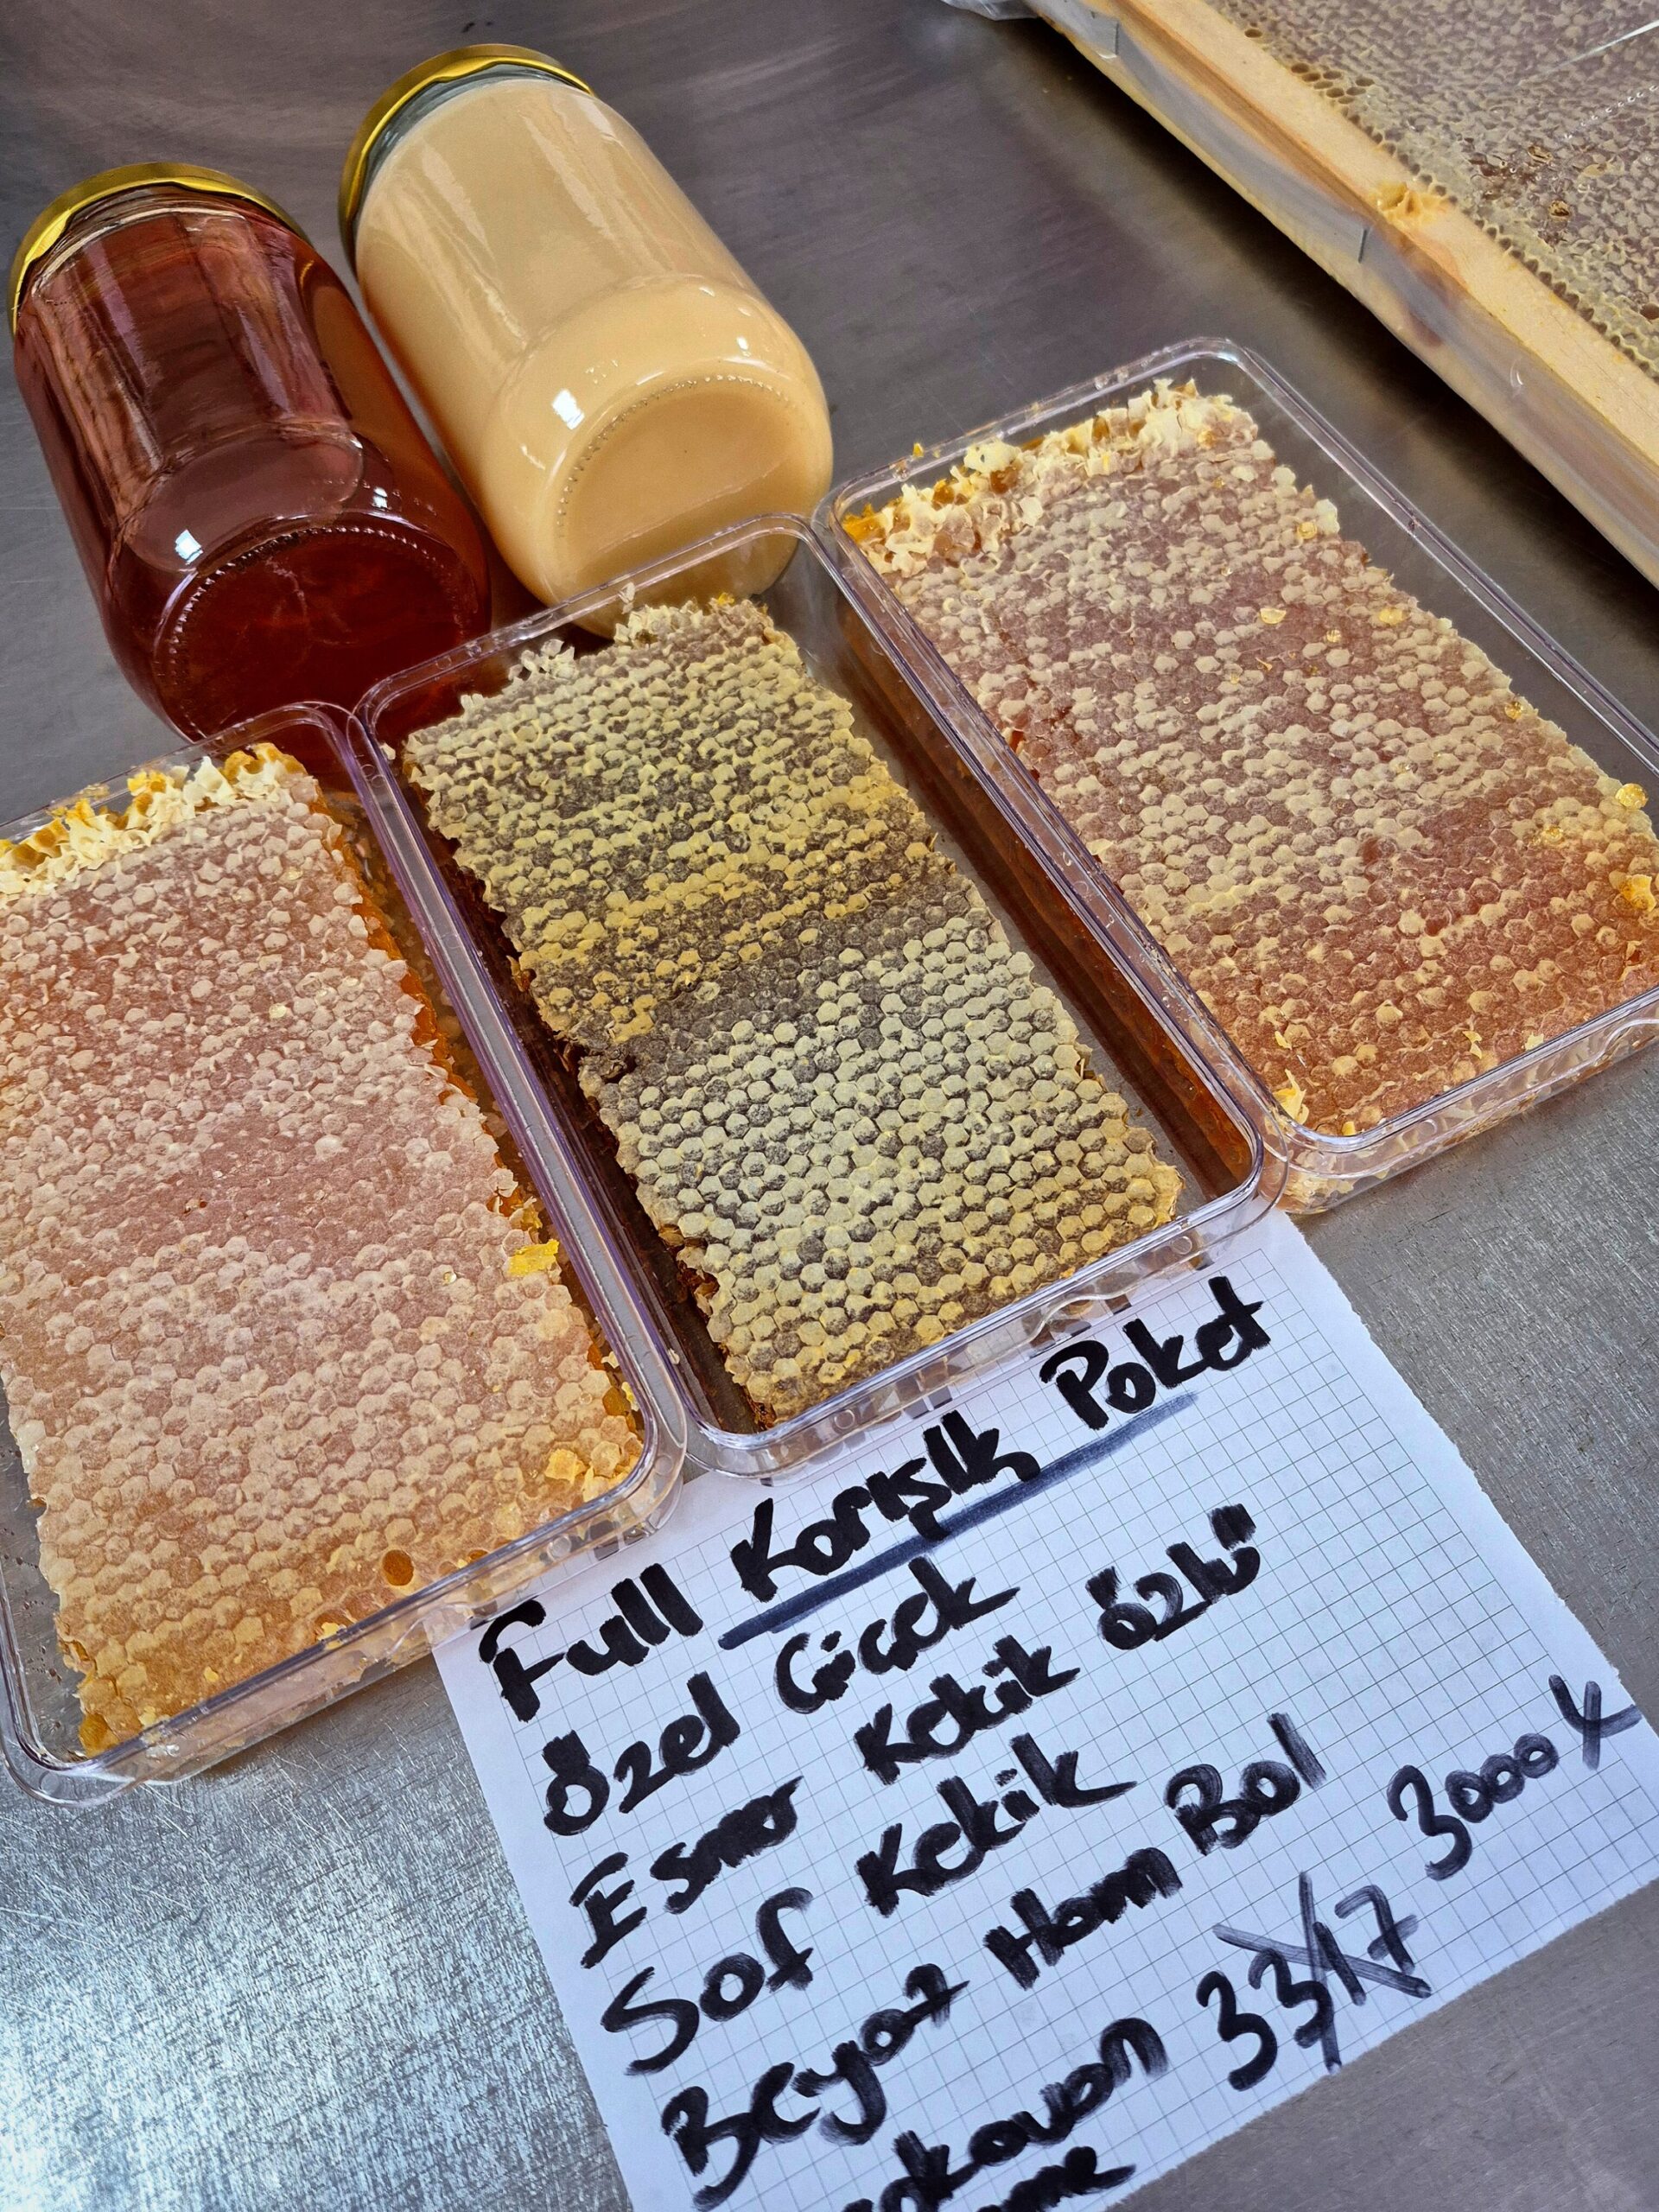 Full Karışık Paket
Özel Çiçek
Esmer Kekik özlü
Saf Kekik
Beyaz Ham Bal
3317 3000